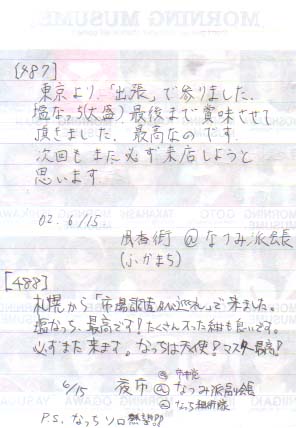 MORNING MUSUME
[487]
東京より、「出張」で参りました。
塩なっち(大盛)最後まで賞味させて
頂きました。最高なのです。
次回もまた必ず来店しようと
思います
02. 6/15.
@なつみ派会長
(ふかまち)
[488]
札幌から「市場調査&巡礼」で来ました。
塩なっち、最高です!たくさん入った紺も良いです。
必ずまた来ます。なっちは天使!マスター最高!
6/15 夜市
なつみ派副会長
なっち
P.S. なっちソロ熱望!!